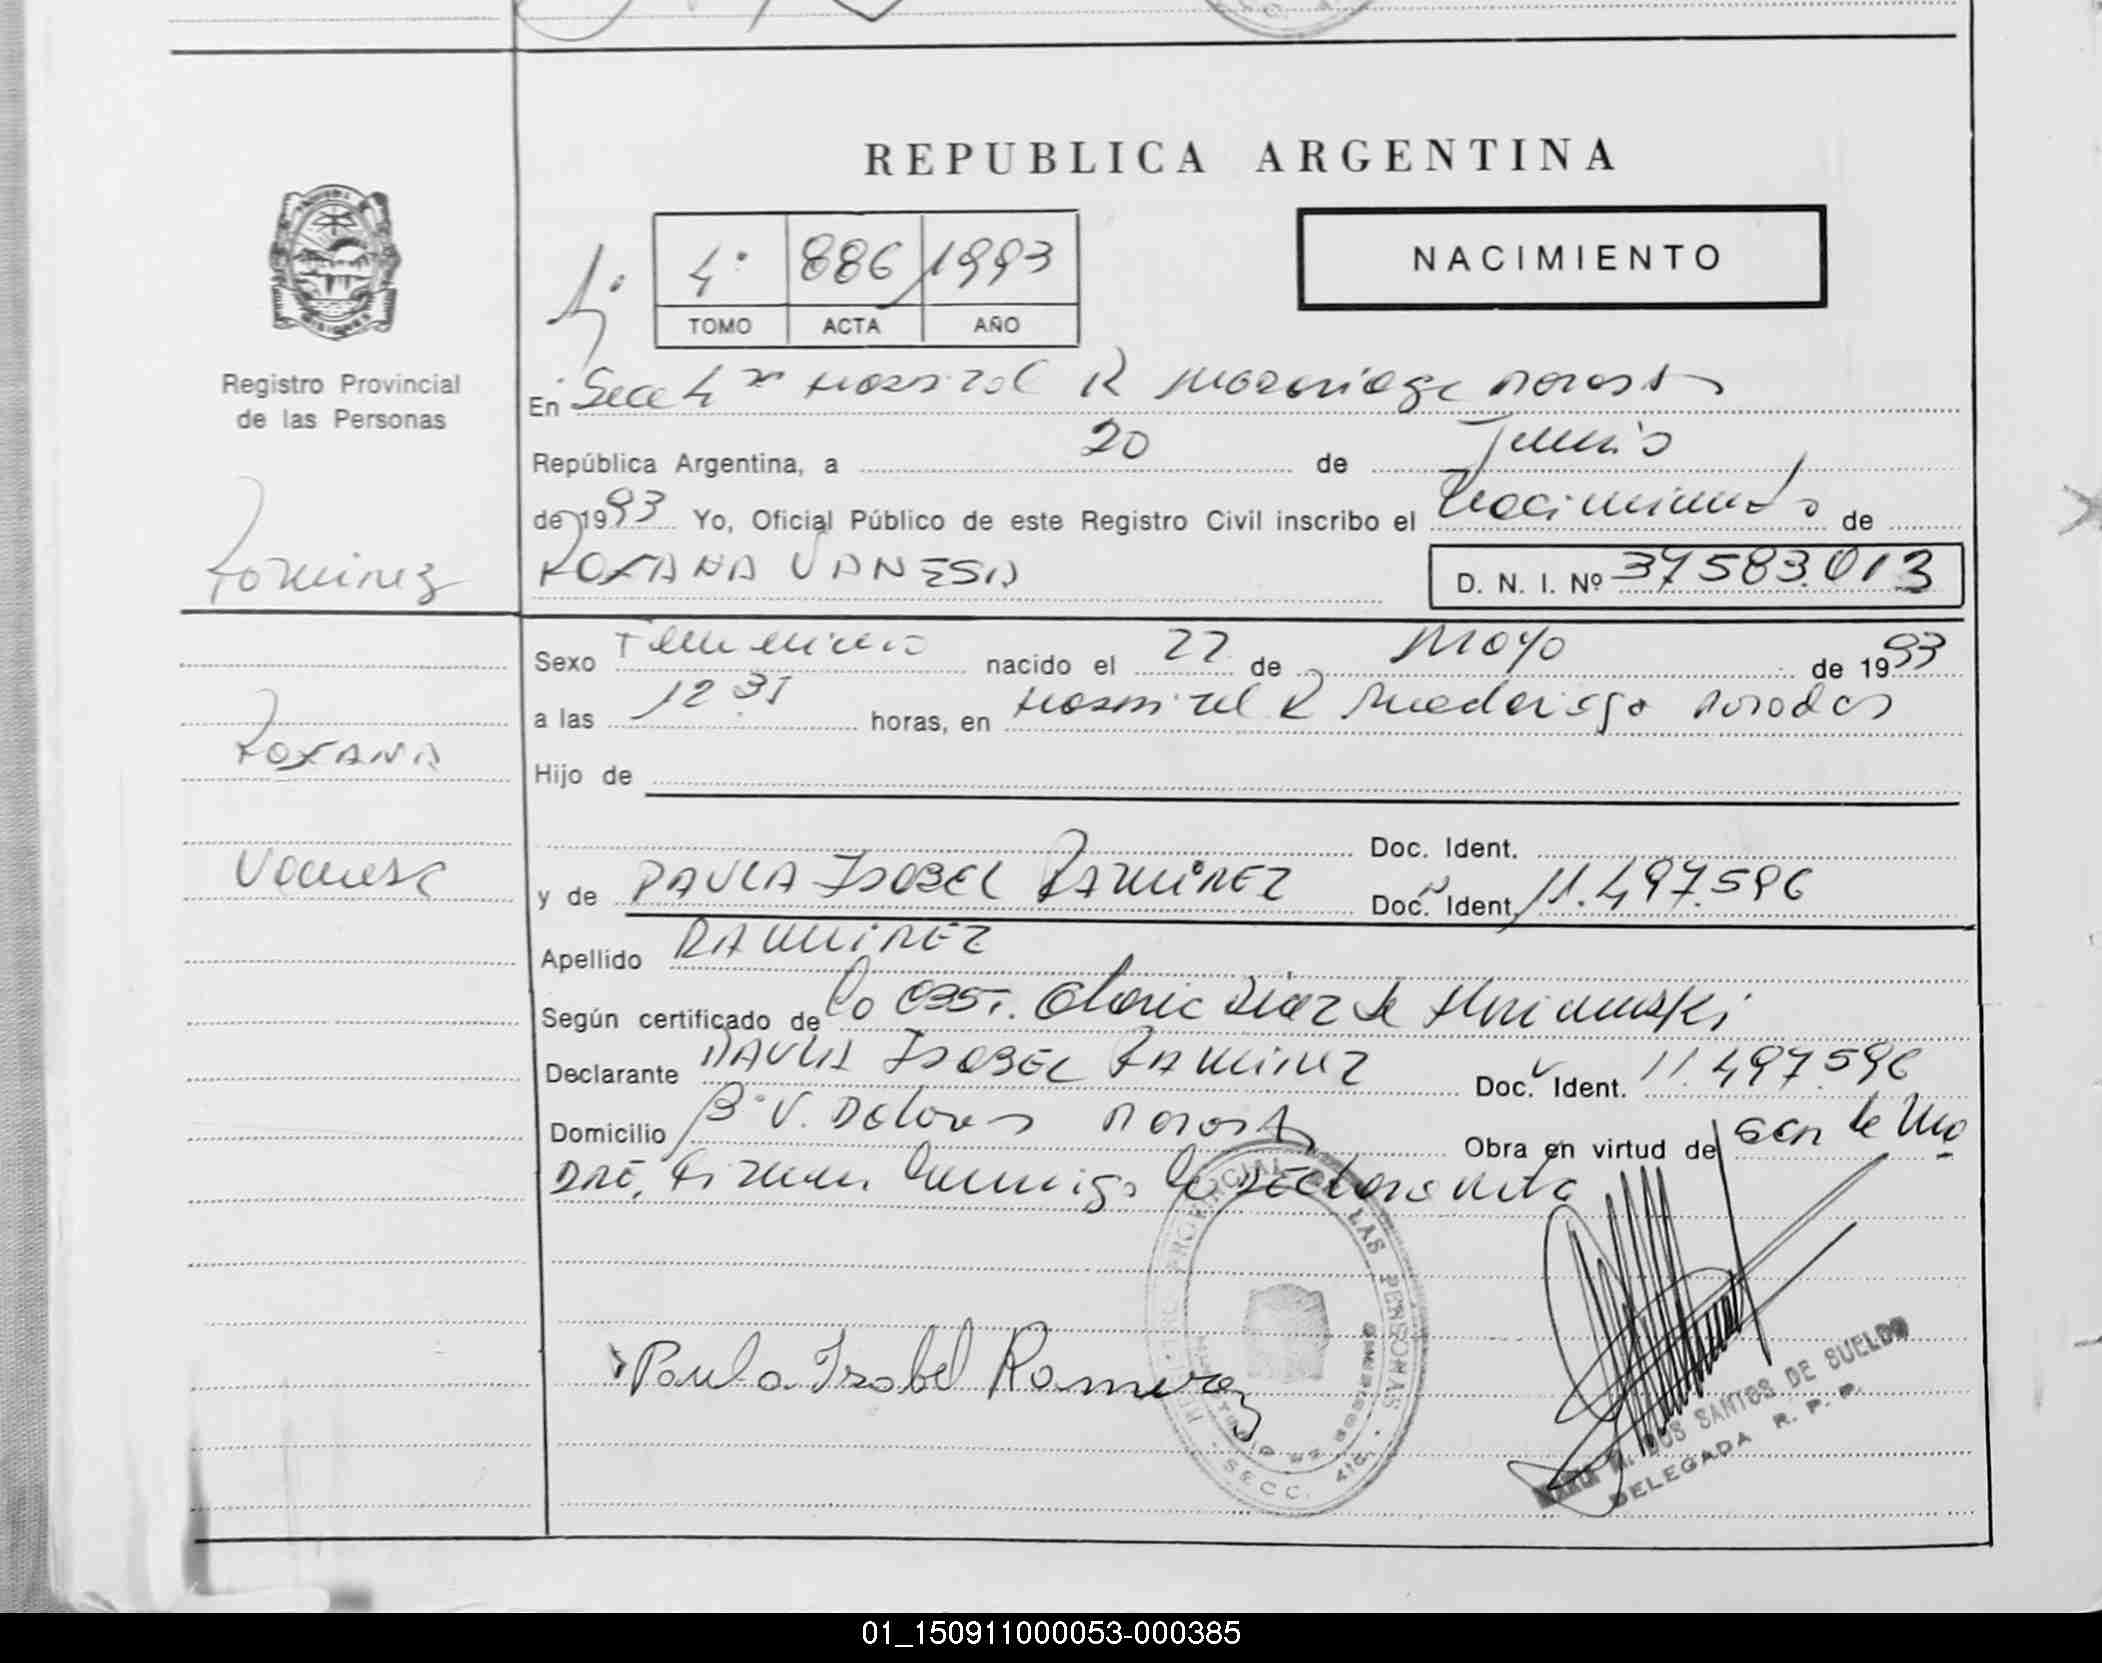 REPUBLICA ARGENTINA
NACIMIENTO
4° 886 1993
TOMO ACTA AÑO
Registro Provincial
de las Personas
En Secc 4ta Hospital R Madariaga Posadas
República Argentina, a 20 de Junio
de 1993 Yo, Oficial Público de este Registro Civil inscribo el Nacimiento de
Ramirez
ROXANA VANESA
D. N. I. Nº 37583.013
Sexo Femenino nacido el 22 de Mayo de 1993
a las 12 35 horas, en Hospital R Madariaga Posadas
ROXANA
Hijo de
Doc. Ident.
Vanesa
y de PAULA ISABEL RAMIREZ Doc. Ident. 11.497.596
Apellido RAMIREZ
Según certificado de la OBST. Gloria Diaz de
Declarante PAULA ISABEL RAMIREZ Doc. Ident. 11.497.596
Domicilio Bº V. Dolores Posadas Obra en virtud de ser la Ma
DRE. Firman Conmigo la Declarante
Paula Isabel Ramirez
REGISTRO PROVINCIAL DE LAS PERSONAS
SECC. 4ta.
DOS SANTOS DE SUELDO
DELEGADA R. P. P.
01_150911000053-000385